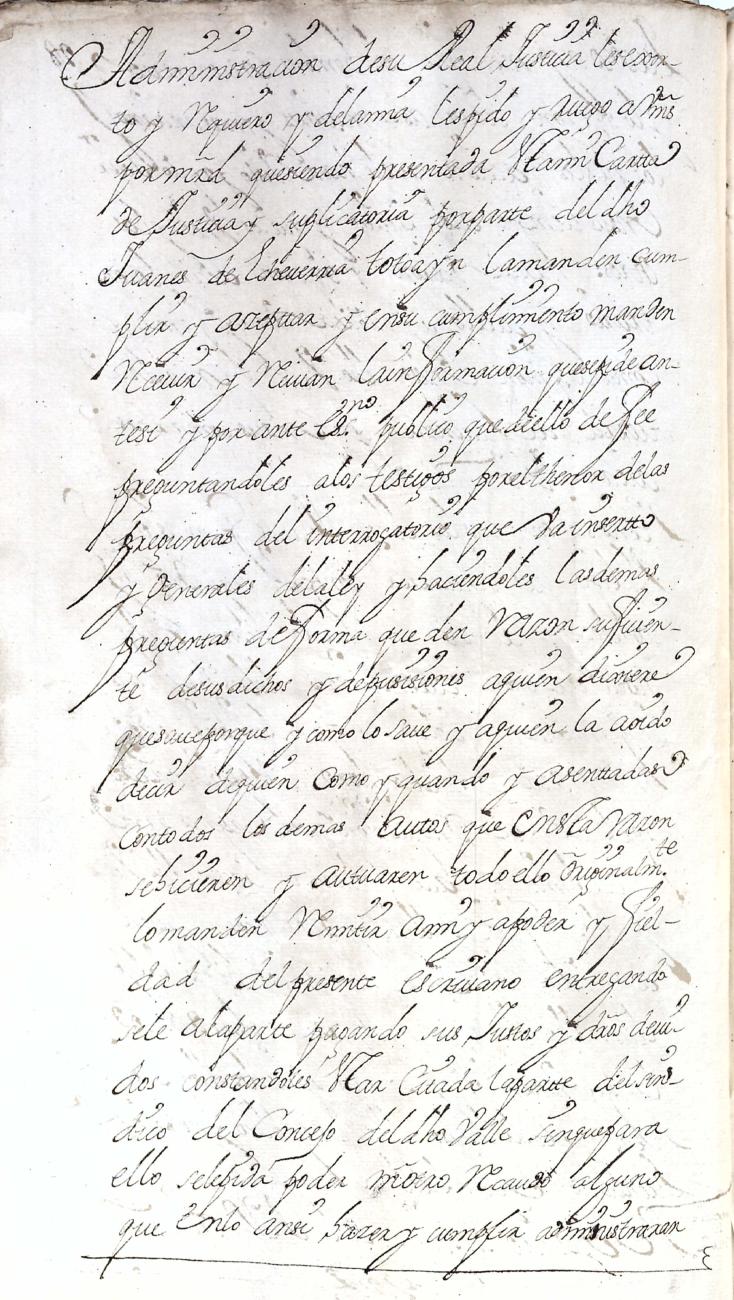 Administracion desu Real Justicia les exor-
to y Rquiero y delamia les pido y ruego a Vms
por mrd que siendo presentada Esta mi Carta
de Justicia y suplicatoria por parte del dho
Juanes de Echeverria totoayn lamanden cum-
plir y azeptar y ensu cumplimiento manden
Recivir y Recivan lainformacion quesepide an-
tesi y por ante Esno publico que deello de fee
preguntandoles alos testigos porelthenor delas
preguntas del interrogatorio que va inserto
y Generales delaley y haciendoles lasdemas
preguntas de forma que den Razon suficien-
te desusdichos y depusisiones aquien dixiere
quesave porque y como lo save y aquien la aoido
decir dequien como y quando y asentadas
contodos los demas autos que Ensta Razon
sehicieren y autuaren todo ello originalmte
lomanden Remitir Ami y apoder y fiel-
dad del presente escrivano entregando
sele alaparte pagando sus Justos y dros devi-
dos constandoles Estar Citada laparte del sin-
dico del Concejo deldho Valle sinquepara
ello selepida poder niotro Recaudo alguno
que Enlo ansi hazer y cumplir administraran